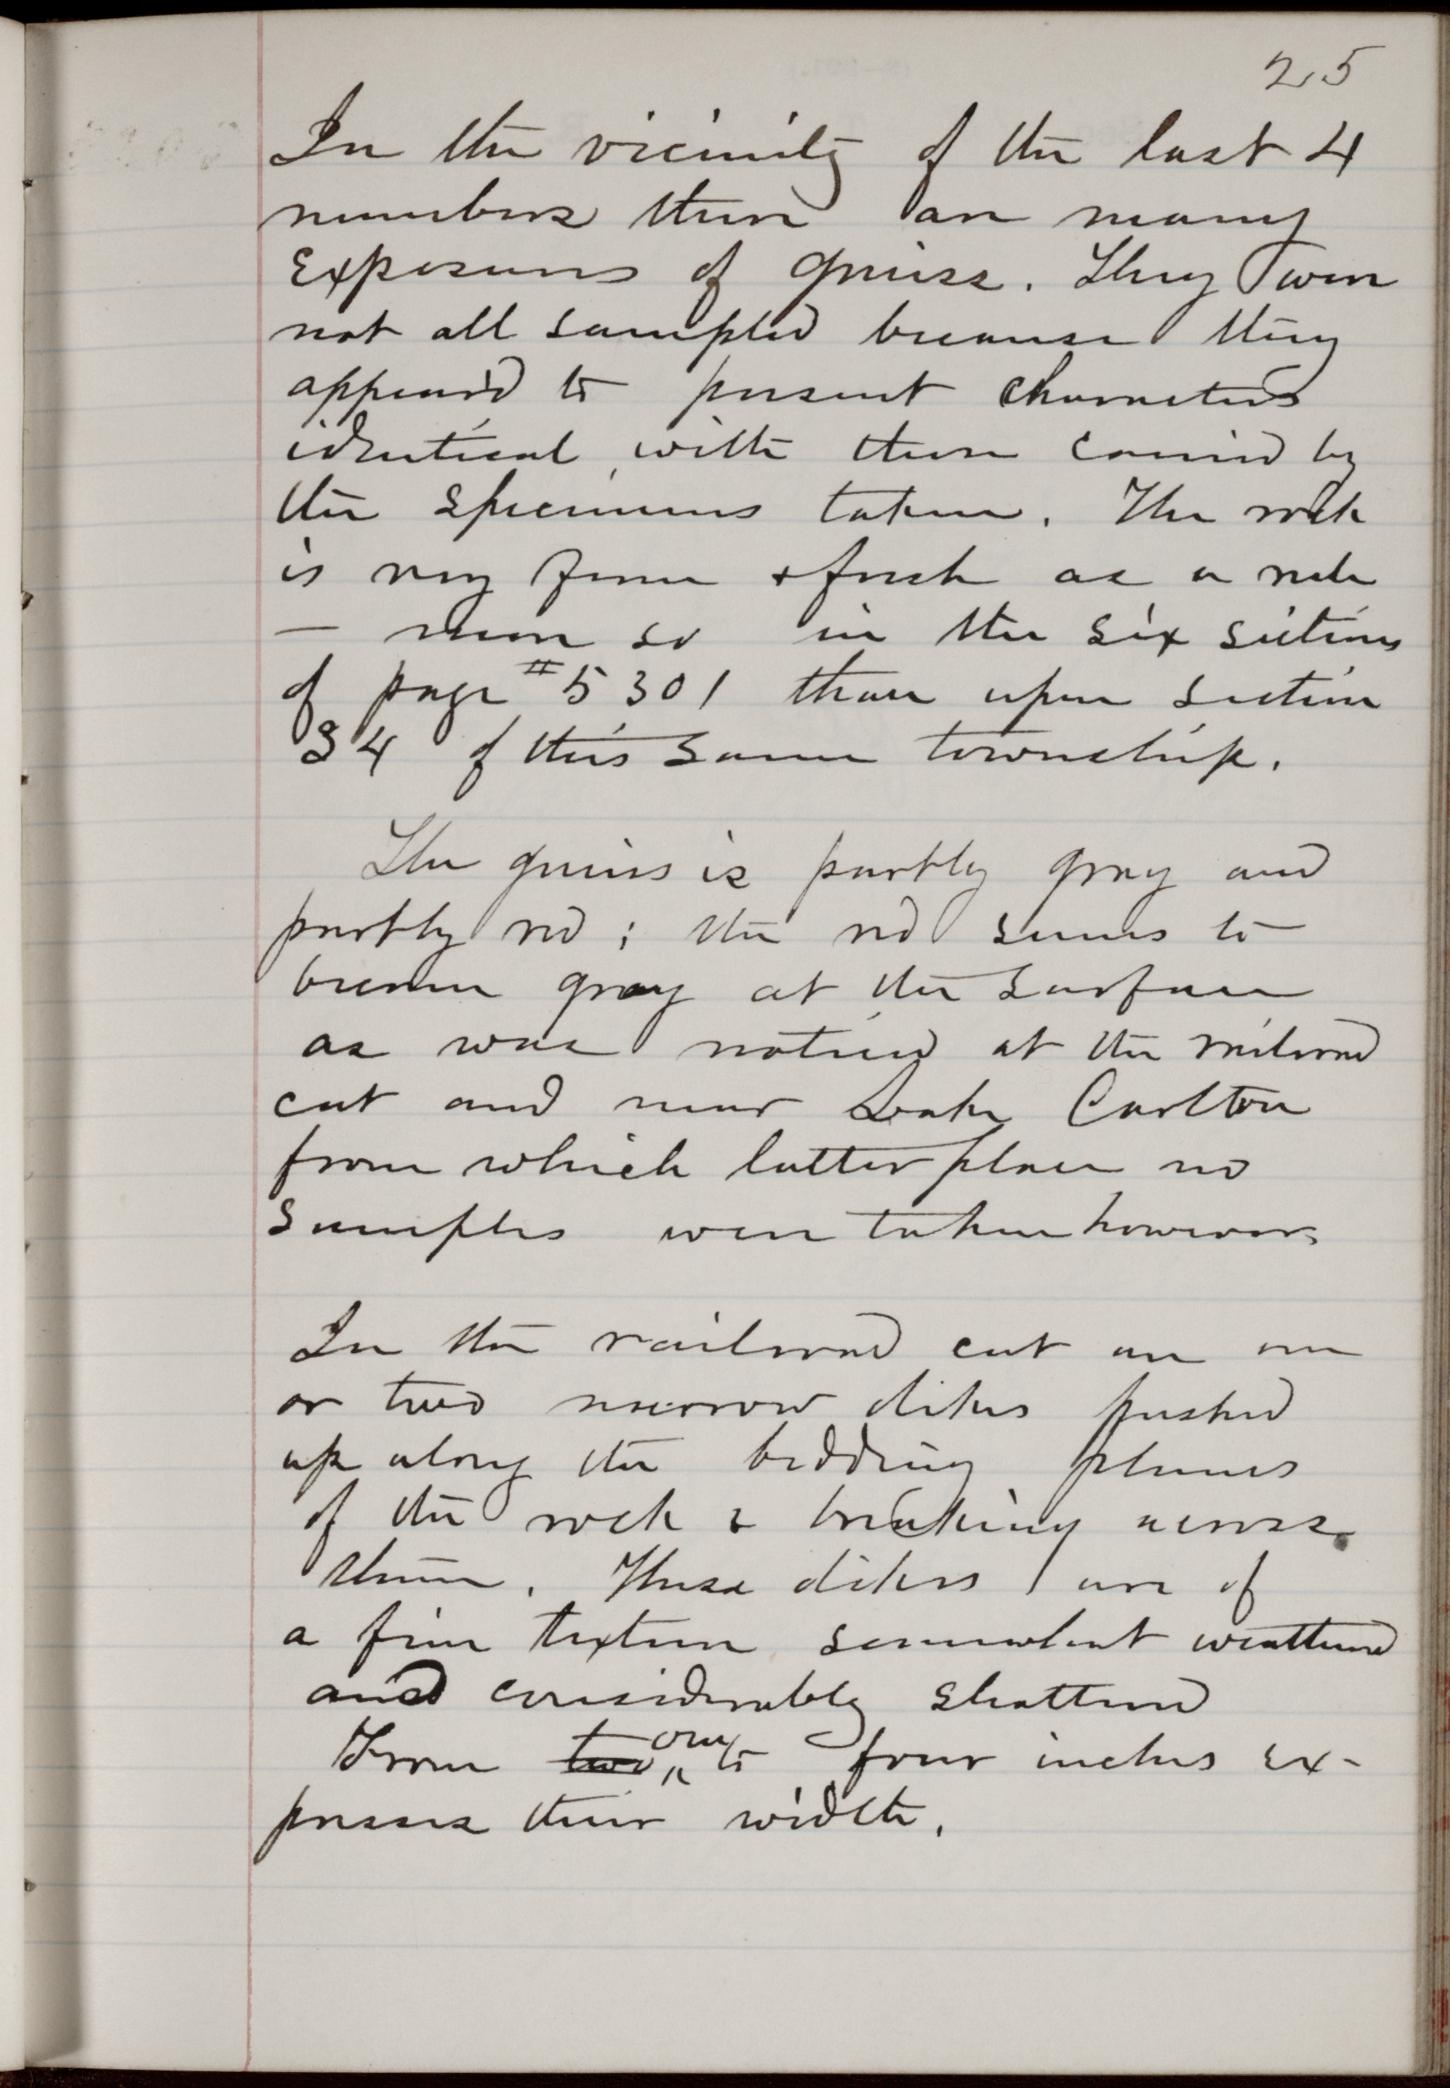 25
In the vicinity of the last 4
numbers there are many
exposures of gneiss. They were
not all sampled because they
appear'd to present characters
identical with those carried by
the specimens taken. The rock
is very firm & fresh as a rule
— more so in the six sections
of page #5301 than upon section
34 of this same township.
The gneiss is partly gray and
partly red; the red seems to
become gray at the surface
as was noticed at the railroad
cut and near Lake Carlton
from which latter place no
samples were taken however.
In the railroad cut are one
or two narrow dikes pushed
up along the bedding planes
of the rock & breaking across
them. These dikes are of
a fine texture somewhat weathered
and considerably shattered
From two one to four inches ex-
presses their width.